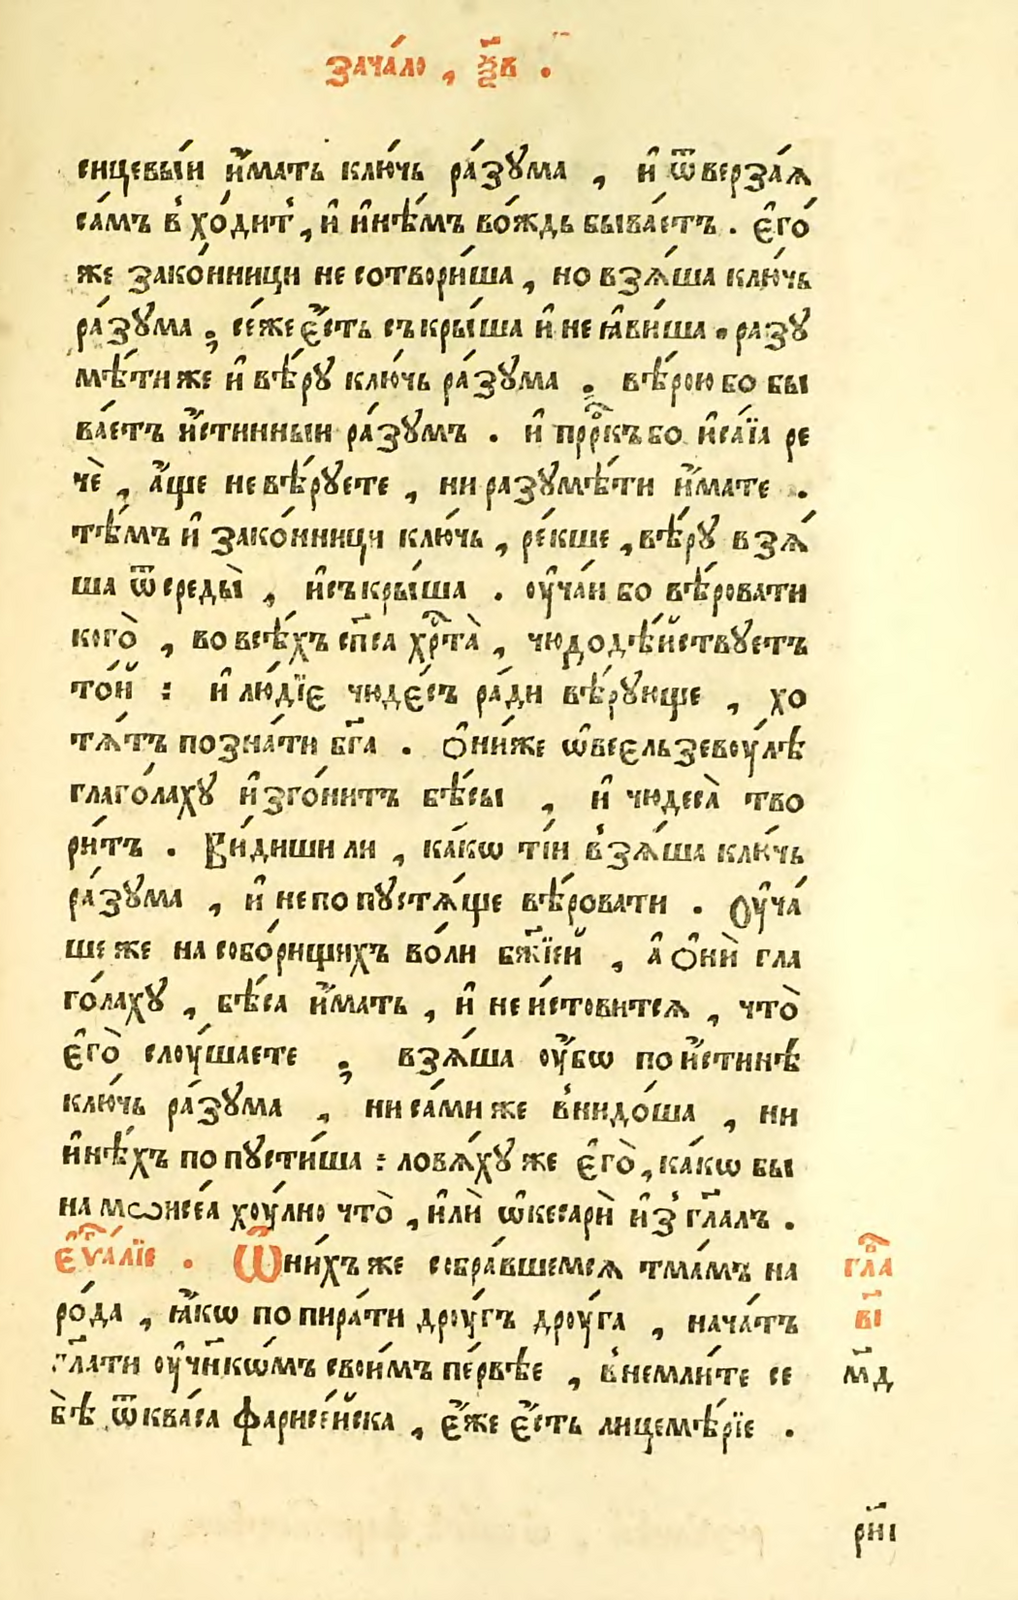 зача́ло , ѯ҃в .
сицевы́и и҆́мать клю́чь ра́зꙋма , и҆ ѿверза́ѧ
са́мъ в҆хо́дит , и҆ и҆нѣ́мъ во́ждь быва́етъ . є҆го́
же зако́нници не сотвори́ша , но взѧ́ша клю́чь
ра́зꙋма , се́же є҆́сть съкры́ша и҆ не ꙗ҆ви́ша . разꙋ
мѣ́ти же и҆ вѣ́рꙋ клю́чь ра́зꙋма . вѣ́рою бо бы
ва́етъ и҆́стинныи ра́зꙋмъ . и҆ прⷪ҇ркъ бо и҆са́їа ре
чѐ , а҆́ще не вѣ́рꙋете , ни разꙋмѣ́ти и҆́мате .
тѣ́мъ и҆ зако́нници клю́чь , ре́кше , вѣ́рꙋ взѧ́
ша ѿ среды̀ , и҆ съкры́ша . оу҆ча́и бо вѣ́ровати
кого̀ , во всѣ́хъ сп҃са хрⷭ҇та̀ , чюдодѣ́йствꙋетъ
то́й : и҆ лю́дїє чюдє́съ ра́ди вѣ́рꙋюще , хо
тѧ́тъ позна́ти бг҃а . ѻ҆ни́же ѡ҆ веєльзевоу́лѣ
глаго́лахꙋ и҆зго́нитъ бѣ́сы , и҆ чюдеса̀ тво
ри́тъ . Ви́диши ли , ка́кѡ ті́и в҆зѧ́ша клю́чь
ра́зꙋма , и҆ не попꙋстѧ́ще вѣ́ровати . Оу҆ча́
ше же на собо́рищихъ во́ли бж҃їей , а҆ ѻ҆нѝ гла
го́лахꙋ , бѣ́са и҆́мать , и҆ неи́стовится , что̀
є҆го̀ слоу́шаете ; взѧ́ша оу҆́бѡ по и҆́стинѣ
клю́чь ра́зꙋма , ни са́ми же в҆нидо́ша , ни
и҆нѣ́хъ попꙋсти́ша : ловѧ́хꙋ же є҆го̀ , ка́кѡ бы
на мѡисе́а хоу́лно что̀ , и҆лѝ ѡ҆ кесарѝ и҆з̾гл҃алъ .
є҆ѵⷢ҇а́лїе . Ѿ ни́хъ же собра́вшемся тма́мъ на
ро́да , ꙗ҆́кѡ попира́ти дроу́гъ дроу́га , нача́тъ
гл҃ати оу҆чн҃кѡ́мъ свои́мъ пе́рвѣе , в҆немли́те се
бѣ̀ ѿ ква́са фарисе́йска , є҆́же є҆́сть лицемѣ́рїе .
глⷡ҇а
в҃і
м҃д
рн҃і